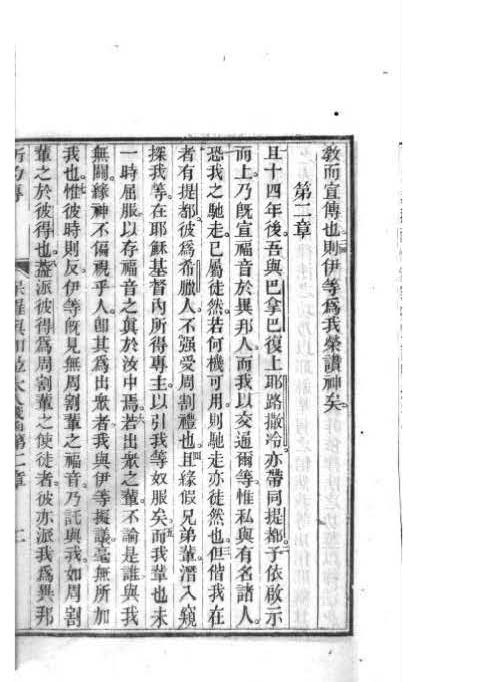 教而宣傳也則伊等爲我榮讚神矣
第二章
且十四年後吾與巴拿巴復上耶路撒冷亦帶同提都子依啟示
而上乃旣宣福音於異邦人而我以交通爾等惟私與有名諸人
恐我之馳走已屬徒然若何機可用則馳走亦徒然也三但偕我在
者有提都彼爲希臘人不强受周割禮也四且緣假兄弟輩潛入窺
探我等在耶穌基督內所得專主以引我等奴服矣五而我輩也未
一時屈服以存福音之眞於汝中焉若出衆之輩不論是誰與我
無關緣神不偏視乎人卽其爲出衆者我與伊等擬議毫無所加
我也惟彼時則反伊等旣見無周割輩之福音乃託與我如周割
輩之於彼得也蓋派彼得爲周割輩之使徒者彼亦派我爲異邦
第二章